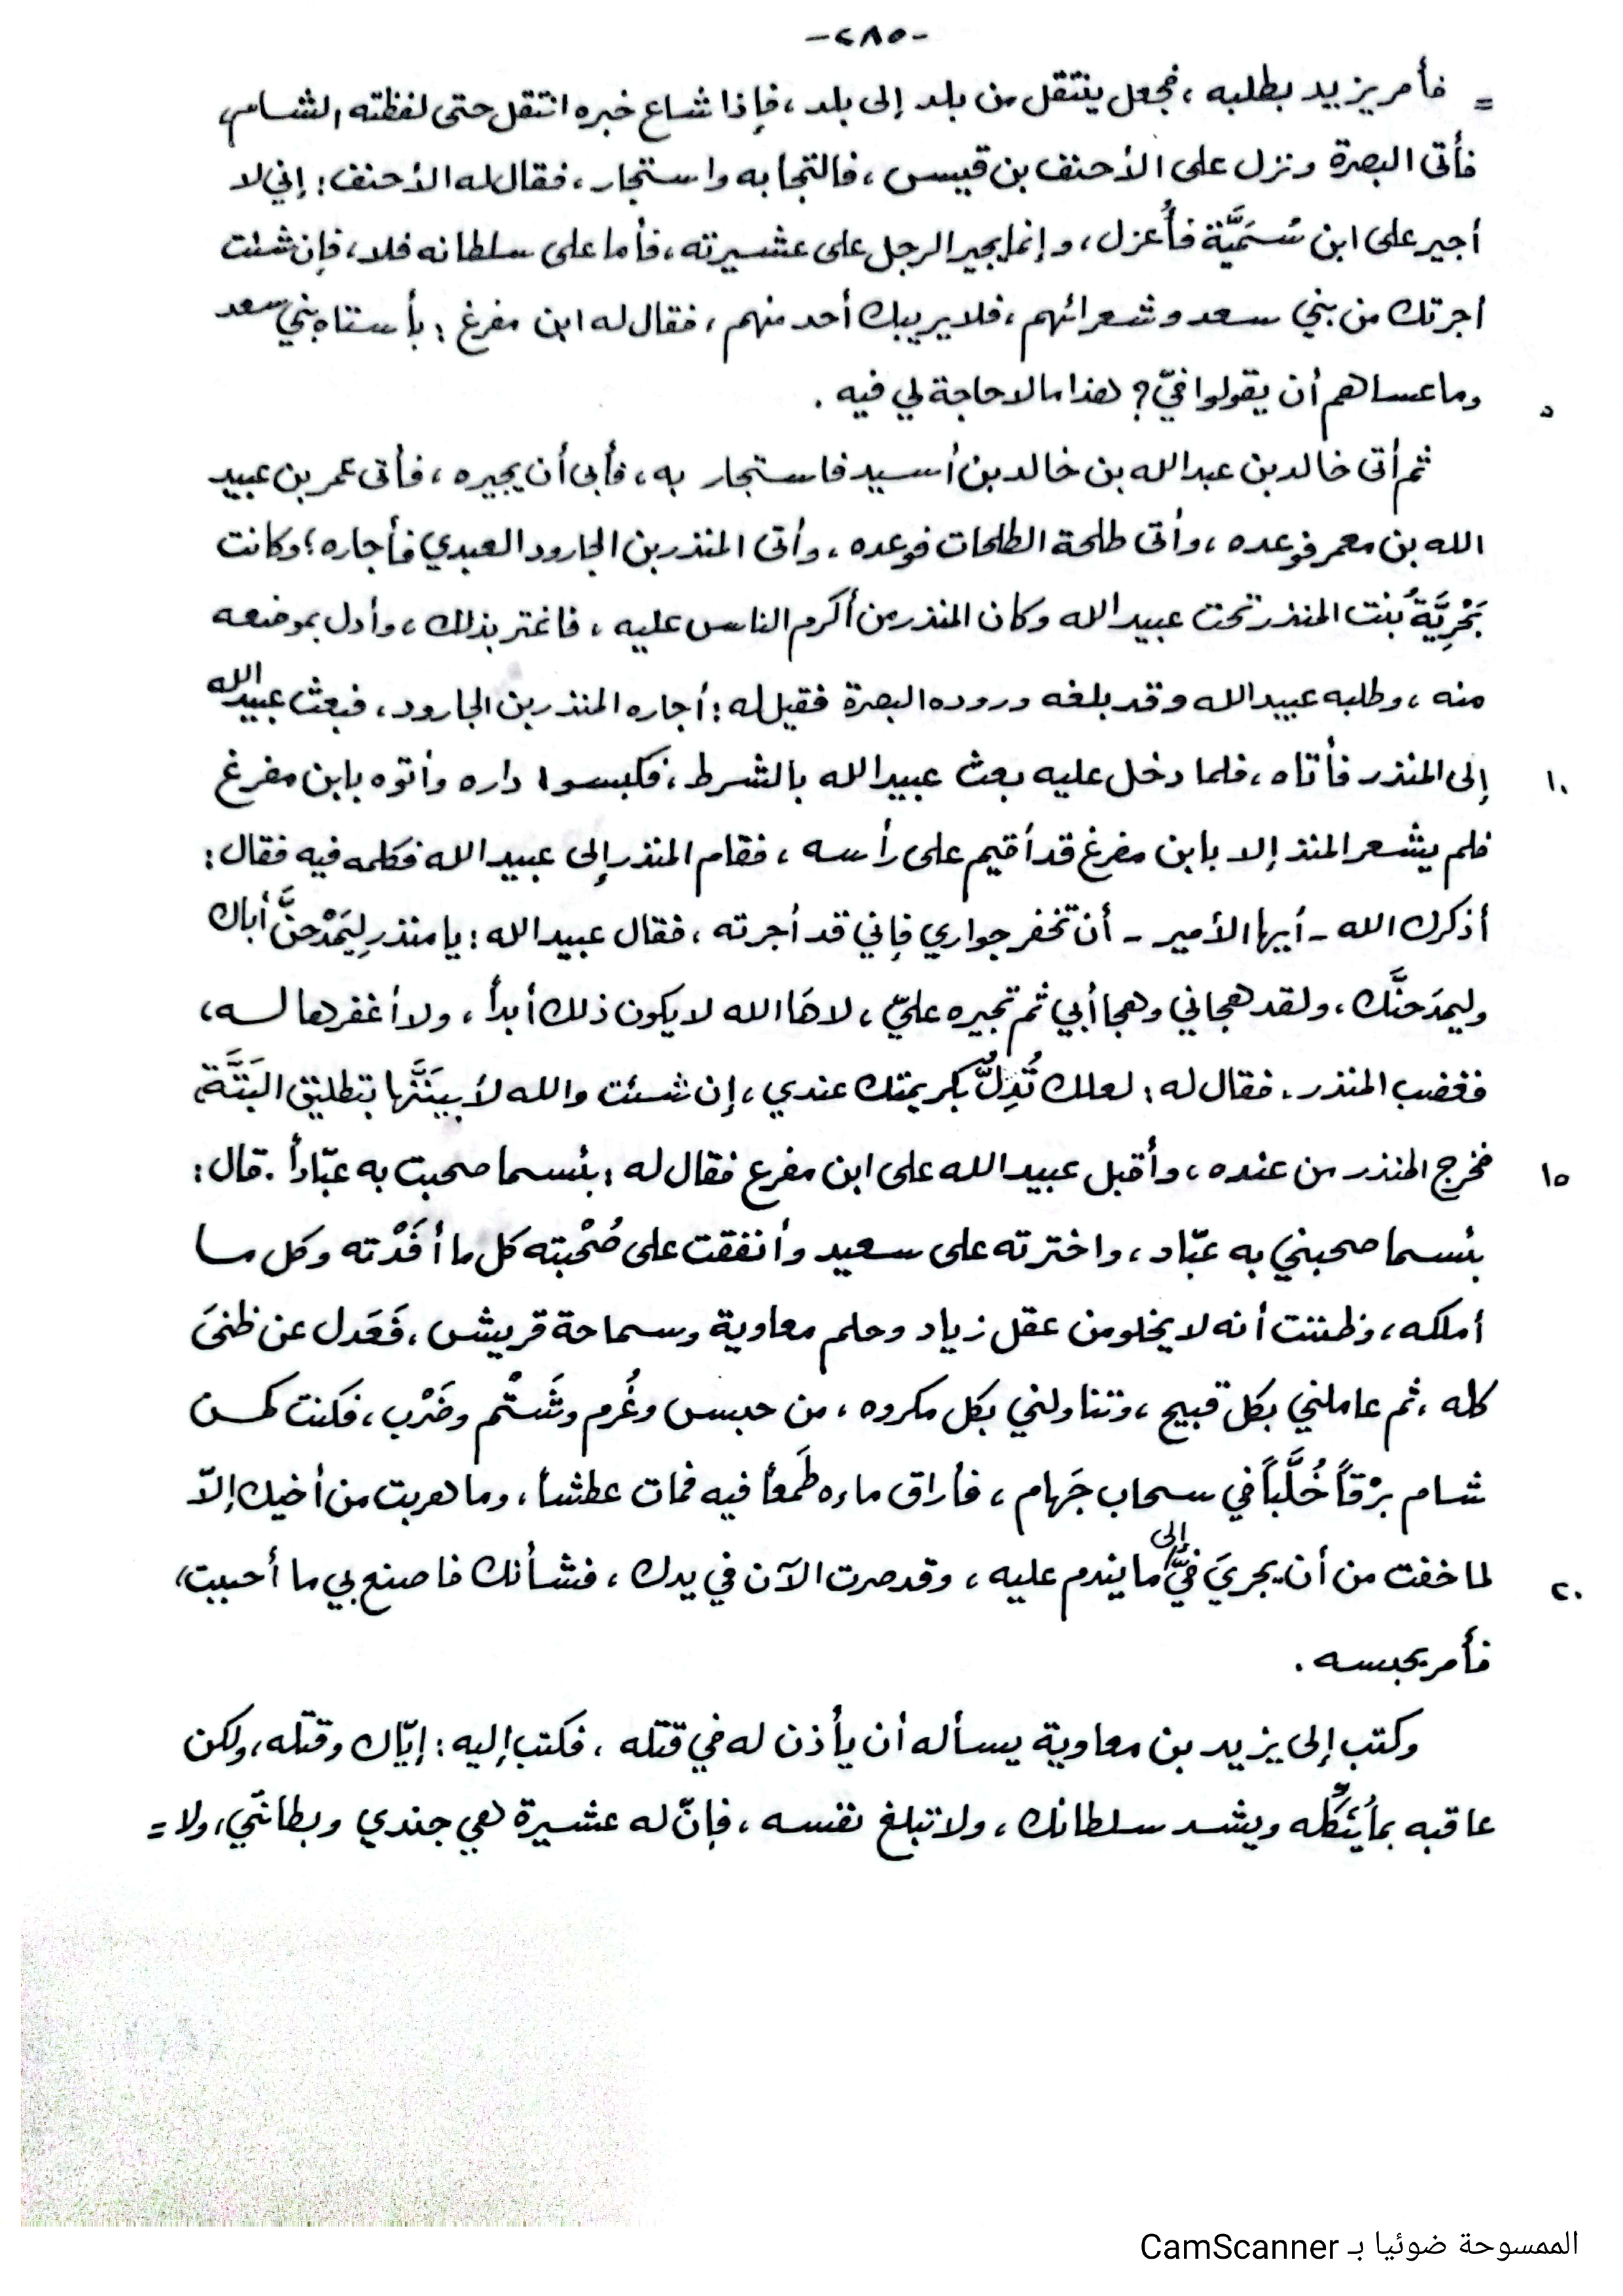 -٢٨٥-
= فأمر يزيد بطلبه ، فجعل ينتقل من بلد إلى بلد ، فإذا شاع خبره انتقل حتى لفظته الشام ،
فأتى البصرة ونزل على الأحنف بن قيس ، فالتجا به واستجار ، فقال له الأحنف : إني لا
أجير على ابن سُمَيَّة فأُعزل ، وإنما يجير الرجل على عشيرته ، فأما على سلطانه فلا ، فإن شئت
أجرتك من بني سعد وشعرائهم ، فلا يريبك أحد منهم ، فقال له ابن مفرغ : بأستاه بني سعد
٥ وما عساهم أن يقولوا فيّ ؟ هذا ما لا حاجة لي فيه .
ثم أتى خالد بن عبد الله بن خالد بن أسيد فاستجار به ، فأبى أن يجيره ، فأتى عمر بن عبيد
الله بن معمر فوعده ، وأتى طلحة الطلحات فوعده ، وأتى المنذر بن الجارود العبدي فأجاره ؛ وكانت
بَحْرِيَّةُ بنت المنذر تحت عبيد الله وكان المنذر من أكرم الناس عليه ، فاغتر بذلك ، وأدل بموضعه
منه ، وطلبه عبيد الله وقد بلغه وروده البصرة فقيل له : أجاره المنذر بن الجارود ، فبعث عبيد الله
١٠ إلى المنذر فأتاه ، فلما دخل عليه بعث عبيد الله بالشرط ، فكبسوا داره وأتوه بابن مفرغ
فلم يشعر المنذ إلا بابن مفرغ قد أقيم على رأسه ، فقام المنذر إلى عبيد الله فكلمه فيه فقال :
أذكرك الله - أيها الأمير - أن تخفر جواري فإني قد أجرته ، فقال عبيد الله : يا منذر لِيَمْدْحنَّ أباك
وليمدَحنَّك ، ولقد هجاني وهجا أبي ثم تجيره عليّ ، لا هَا الله لا يكون ذلك أبداً ، ولا أغفرها له ،
فغضب المنذر . فقال له : لعلك تُدِلُّ بكريمتك عندي ، إن شئت والله لأبينَنَّها بتطليق البَتَّة ،
١٥ فخرج المنذر من عنده ، وأقبل عبيد الله على ابن مفرغ فقال له : بئسما صحبت به عبّاداً . قال :
بئسما صحبني به عبّاد ، واخترته على سعيد وأنفقت على صُحْبته كل ما أفَدْته وكل ما
أملكه ، وظننت أنه لا يخلو من عقل زياد وحلم معاوية وسماحة قريش ، فَعَدل عن ظنىَ
كله ، ثم عاملني بكل قبيح ، وتناولني بكل مكروه ، من حبس وغُرم وشَتْم وضَرْب ، فكنت كمن
شام برْقاً خُلَّباً في سحاب جَهام ، فأراق ماءه طَمعاً فيه فمات عطشاً ، وما هربت من أخيك إلاّ
٢٠ لما خفت من أن يجريَ فيَّ إلى ما يندم عليه ، وقد صرت الآن في يدك ، فشأنك فاصنع بي ما أحببت ،
فأمر بحبسه .
وكتب إلى يزيد بن معاوية يسأله أن يأذن له في قتله ، فكتب إليه : إيّاك وقتله ، ولكن
عاقبه بما يُنَكِّله ويشد سلطانك ، ولا تبلغ نفسه ، فإنّ له عشيرة هي جندي وبطانتي ، ولا =
الممسوحة ضوئيا بـ CamScanner